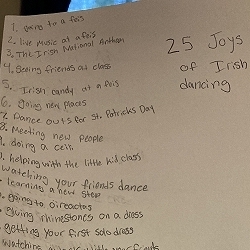 1. going to a feis
2. Live music at a feis
3. The Irish National Anthem
4. Seeing friends at class
5. Irish candy at a feis
6. Going new places
7. Dance outs for St. Patricks Day
8. Meeting new people
9. doing a ceili
helping with the little kid class
watching your friends dance
learning a new step
going to oireachtas
giving rhinestones on a dress
getting your first solo dress
25 Joys
of Irish
dancing